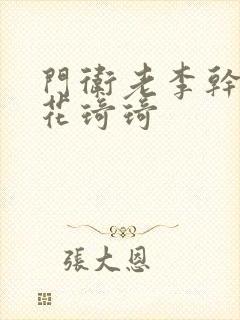 門衛老李幹
花琦琦
張大恩